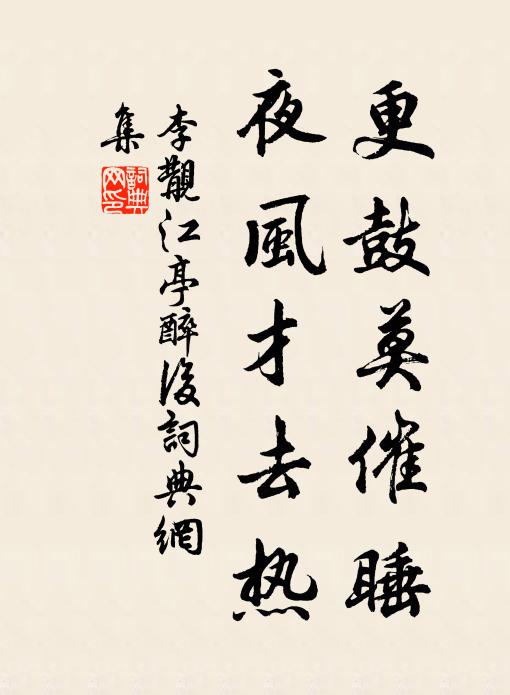 更鼓莫催睡
夜風才去热
李覯江亭醉後詞典網
集
詞典
网印